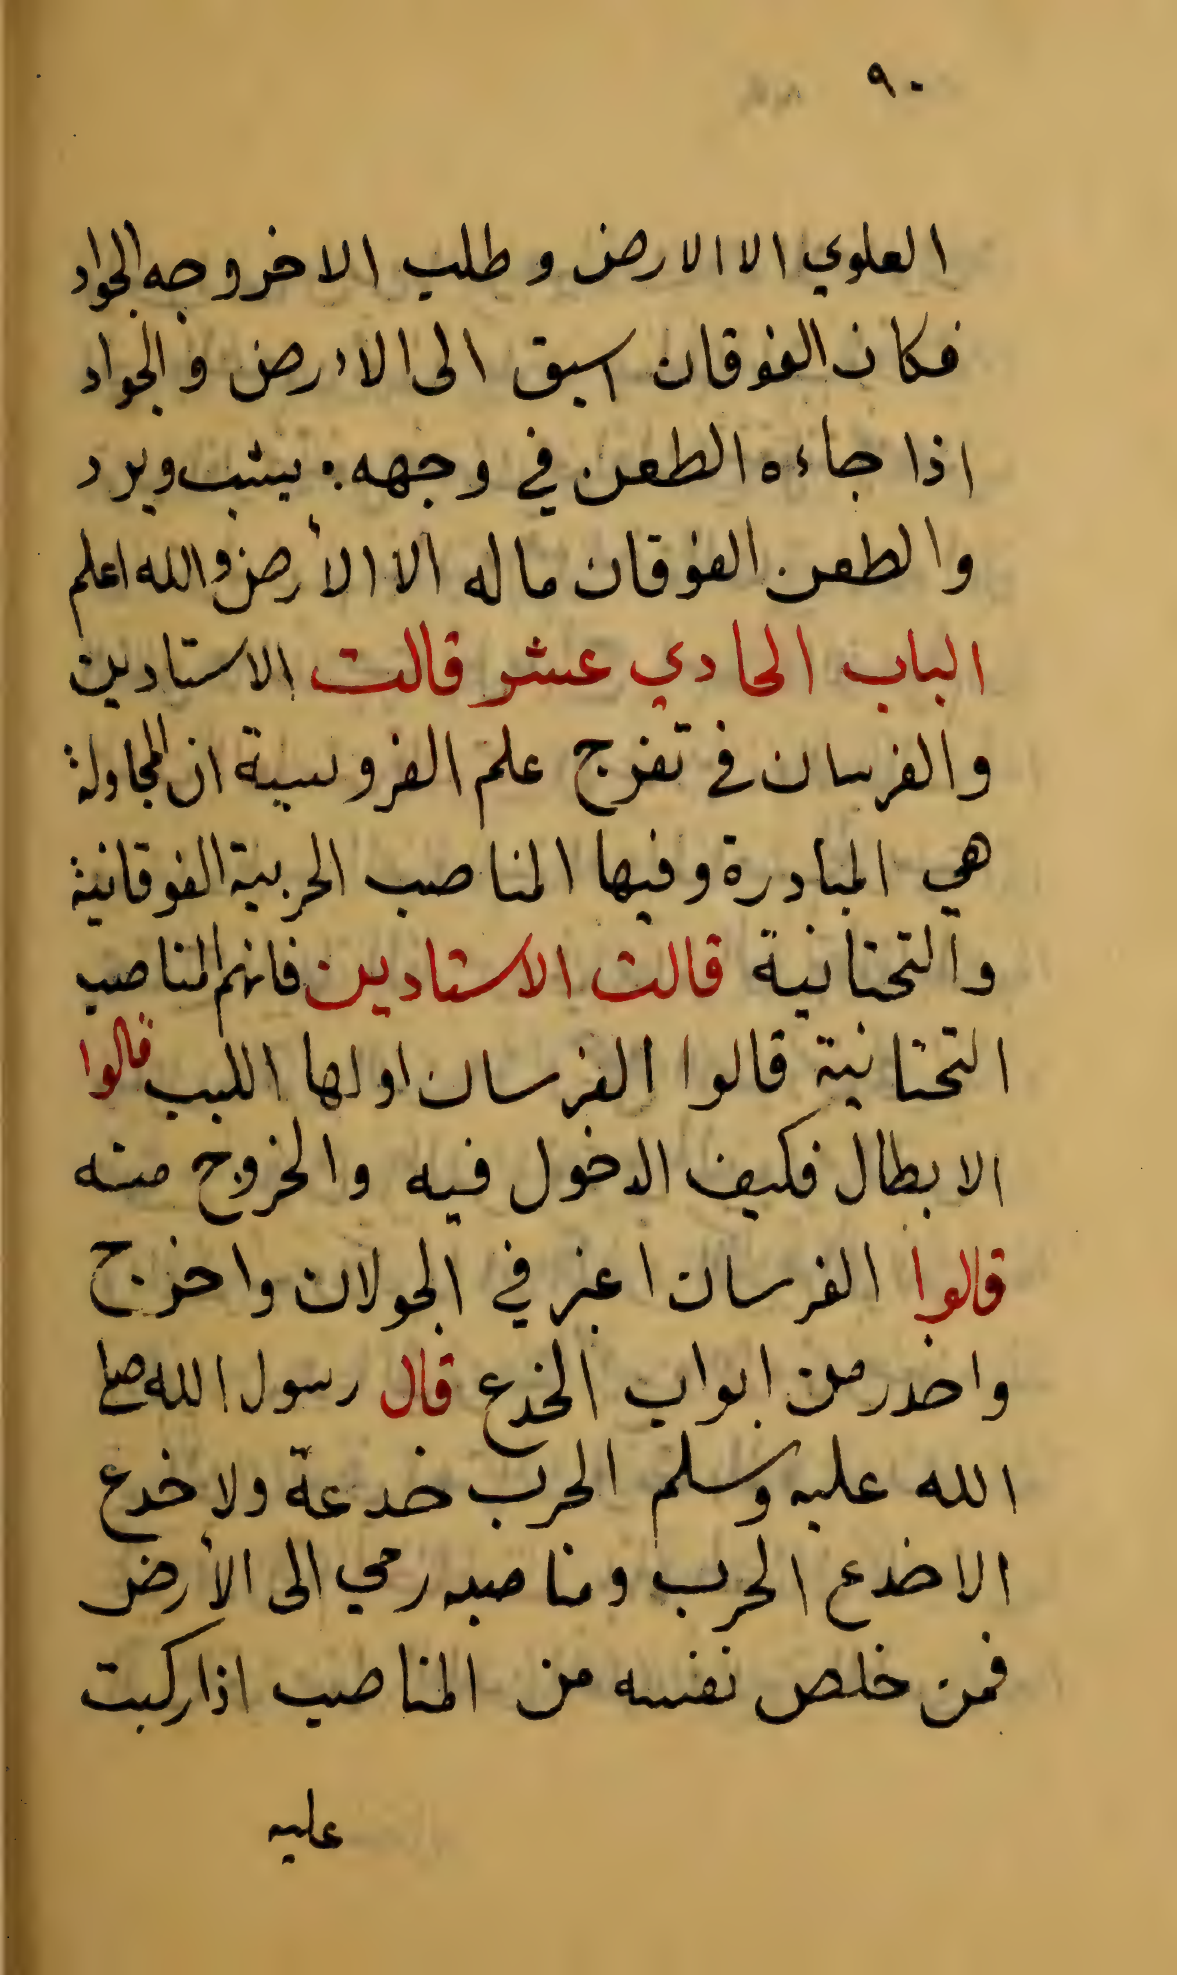 ٩٠
العلوي الا الارض وطلب الاخر وجه الجواد
فكان الفوقان اسبق الى الارض والجواد
اذا جاءه الطعن في وجهه يشب ويرد
والطعن الفوقان ماله الا الأرض والله اعلم
الباب الحادي عشر قالت الاستادين
والفرسان في تفرج علم الفروسية ان المجاولة
هي المبادرة وفيها المناصب الحربية الفوقانية
والتحتانية قالت الاستادين فانهم المناصب
التحتانية قالوا الفرسان اولها اللبب قالوا
الابطال فكيف الدخول فيه والخروج منه
قالوا الفرسان اعبر في الجولان واخرج
واحذر من ابواب الخدع قال رسول الله صلى
الله عليه وسلم الحرب خدعة ولا خدع
الا خدع الحرب ومناصبه رمي الى الأرض
فمن خلص نفسه من المناصب اذا ركبت
عليه